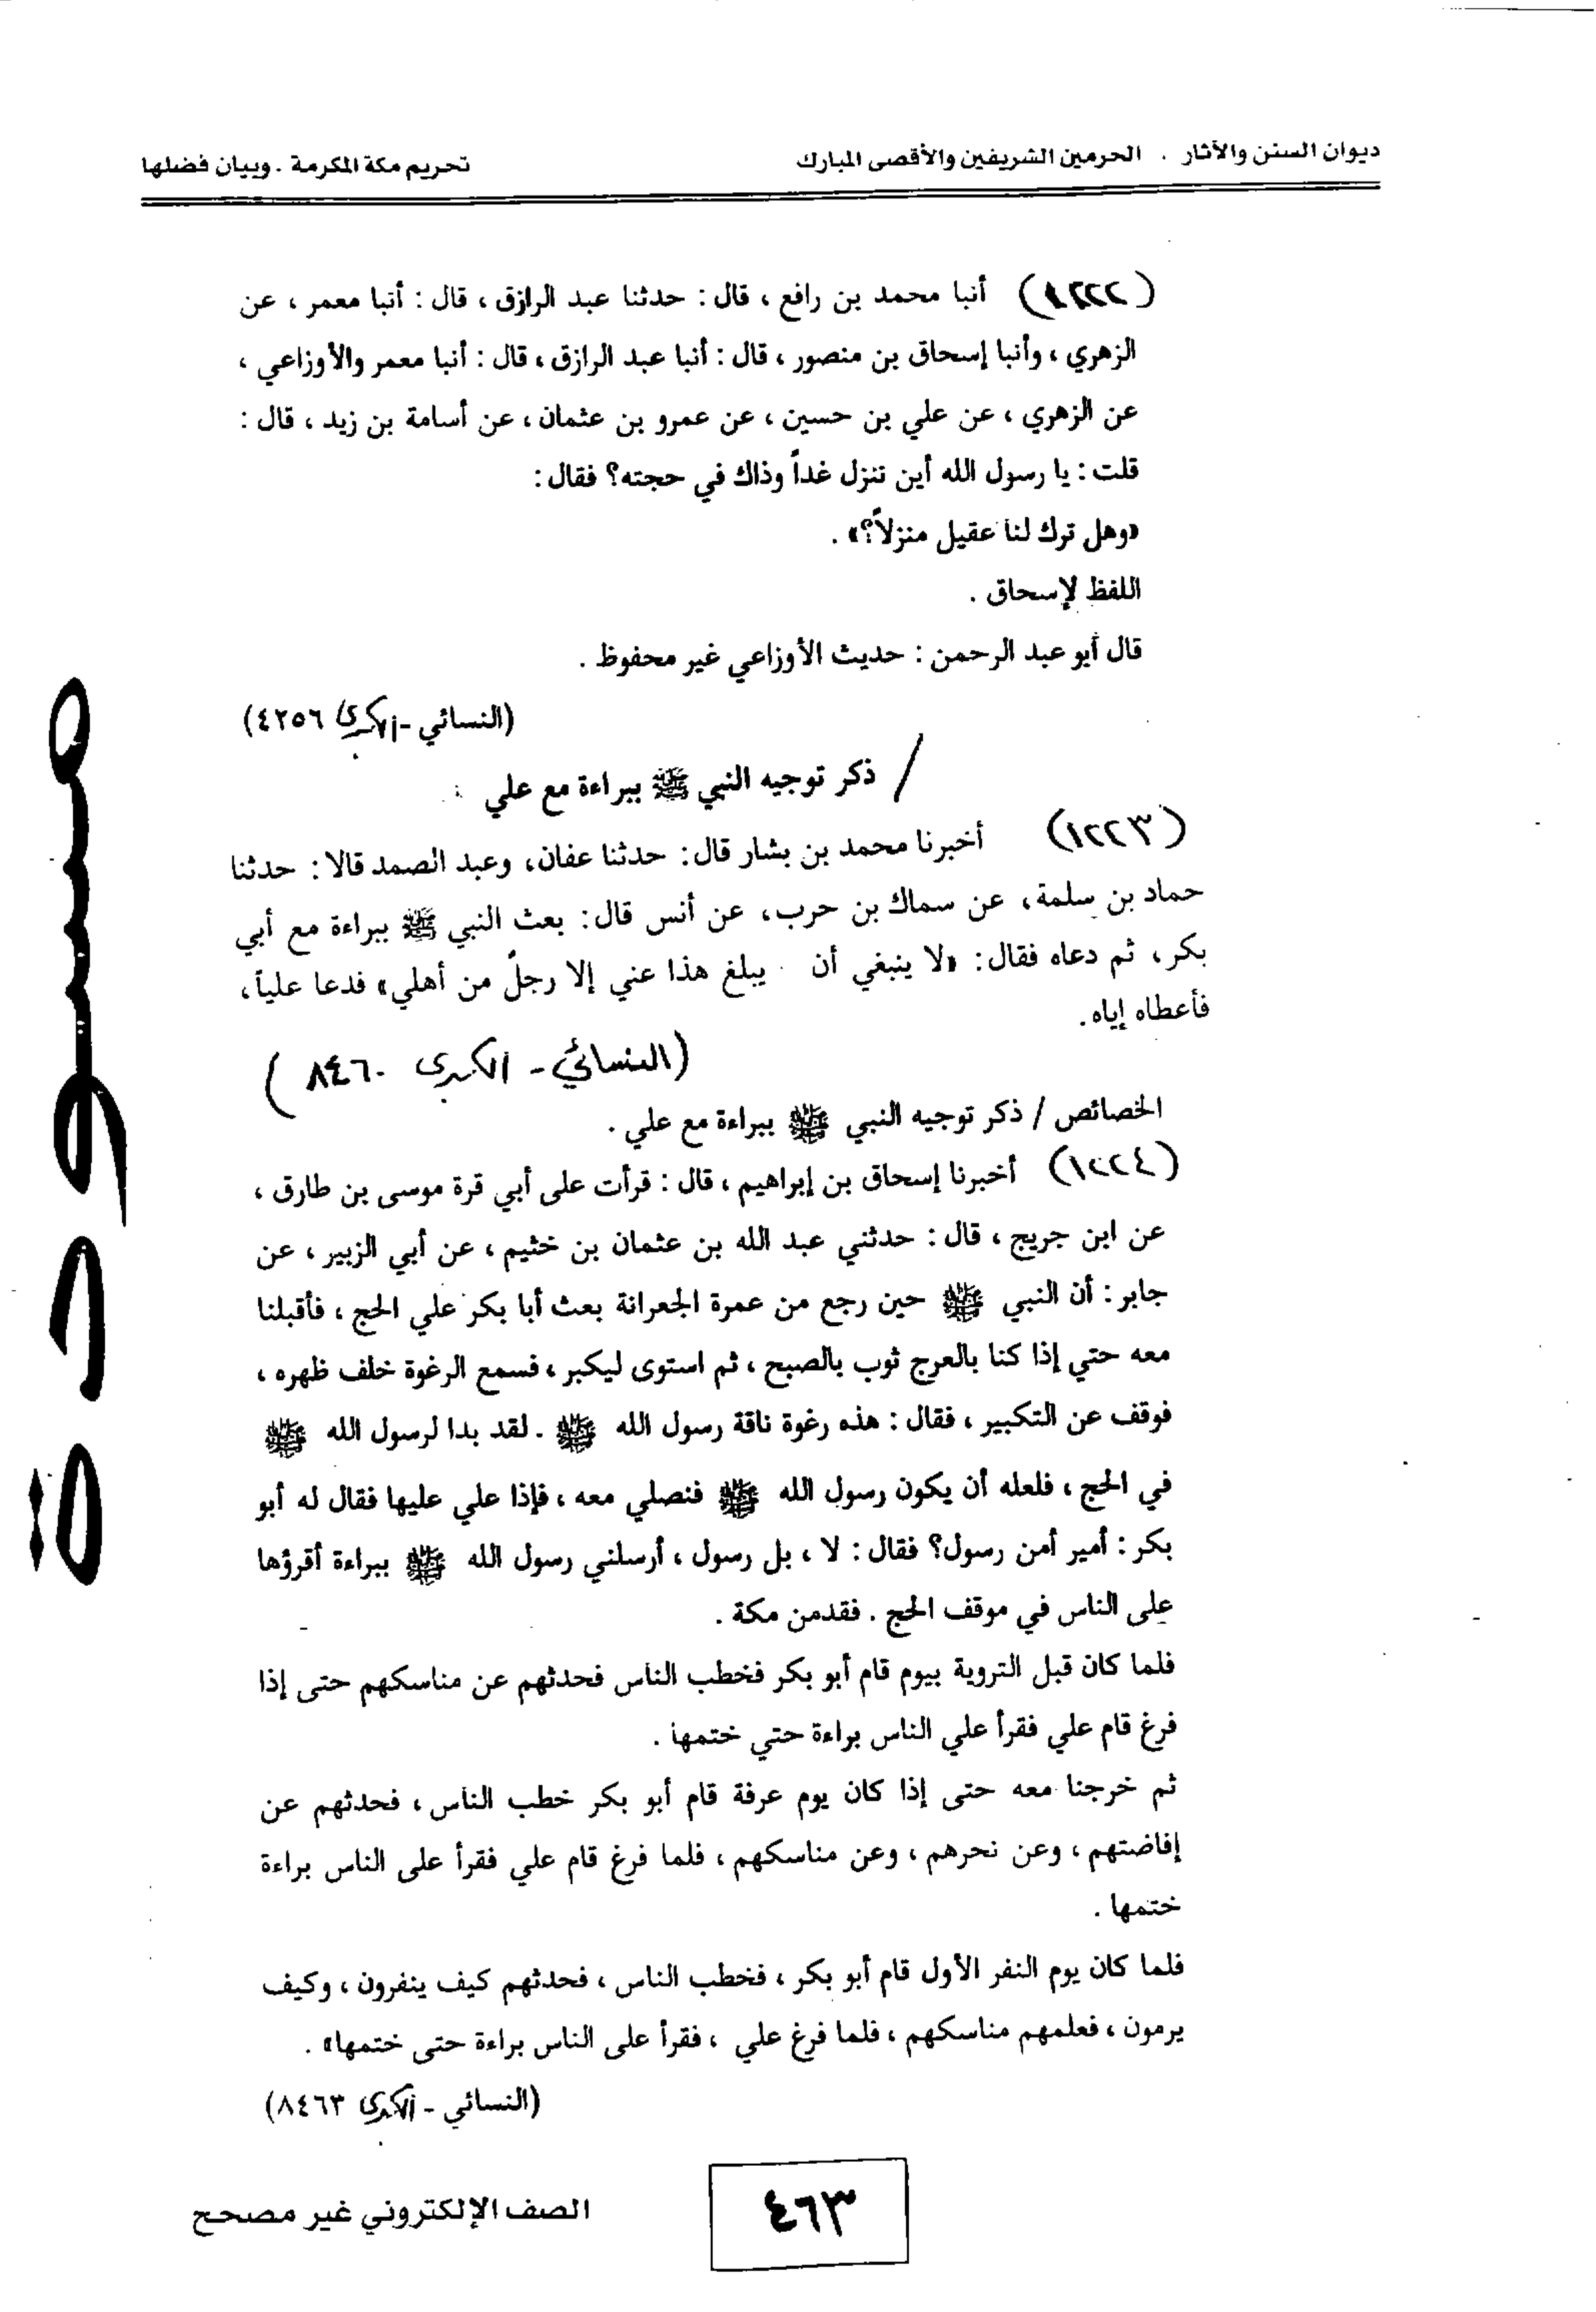 ديوان السنن والآثار . الحرمين الشريفين والأقصى المبارك
تحريم مكة المكرمة . وبيان فضلها
(١٢٢٢) أنبا محمد بن رافع ، قال : حدثنا عبد الرازق ، قال : أنبا معمر ، عن
الزهري ، وأنبا إسحاق بن منصور ، قال : أنبا عبد الرازق ، قال : أنبا معمر والأوزاعي ،
عن الزهري ، عن علي بن حسين ، عن عمرو بن عثمان ، عن أسامة بن زيد ، قال :
قلت : يا رسول الله أين ننزل غداً وذاك في حجته؟ فقال :
«وهل ترك لنا عقيل منزلاً؟» .
اللفظ لإسحاق .
قال أبو عبد الرحمن : حديث الأوزاعي غير محفوظ .
(النسائي - الكبرى ٤٢٥٦)
/ ذكر توجيه النبي ﷺ ببراءة مع علي
(١٢٢٣) أخبرنا محمد بن بشار قال: حدثنا عفان، وعبد الصمد قالا: حدثنا
حماد بن سلمة، عن سماك بن حرب، عن أنس قال: بعث النبي ﷺ ببراءة مع أبي
بكر، ثم دعاه فقال: «لا ينبغي أن يبلغ هذا عني إلا رجلٌ من أهلي» فدعا علياً،
فأعطاه إياه.
(النسائي - الكبرى ٨٤٦٠)
الخصائص / ذكر توجيه النبي ﷺ ببراءة مع علي .
(١٢٢٤) أخبرنا إسحاق بن إبراهيم ، قال : قرأت على أبي قرة موسى بن طارق ،
عن ابن جريج ، قال : حدثني عبد الله بن عثمان بن خثيم ، عن أبي الزبير ، عن
جابر : أن النبي ﷺ حين رجع من عمرة الجعرانة بعث أبا بكر علي الحج ، فأقبلنا
معه حتي إذا كنا بالعرج ثوب بالصبح ، ثم استوى ليكبر ، فسمع الرغوة خلف ظهره ،
فوقف عن التكبير ، فقال : هذه رغوة ناقة رسول الله ﷺ . لقد بدا لرسول الله ﷺ
في الحج ، فلعله أن يكون رسول الله ﷺ فنصلي معه ، فإذا علي عليها فقال له أبو
بكر : أمير أمن رسول؟ فقال : لا ، بل رسول ، أرسلني رسول الله ﷺ ببراءة أقرؤها
على الناس في موقف الحج . فقدمن مكة .
فلما كان قبل التروية بيوم قام أبو بكر فخطب الناس فحدثهم عن مناسكهم حتى إذا
فرغ قام علي فقرأ علي الناس براءة حتي ختمها .
ثم خرجنا معه حتى إذا كان يوم عرفة قام أبو بكر خطب الناس ، فحدثهم عن
إفاضتهم ، وعن نحرهم ، وعن مناسكهم ، فلما فرغ قام علي فقرأ على الناس براءة
ختمها .
فلما كان يوم النفر الأول قام أبو بكر ، فخطب الناس ، فحدثهم كيف ينفرون ، وكيف
يرمون ، فعلمهم مناسكهم ، فلما فرغ علي ، فقرأ على الناس براءة حتى ختمها» .
(النسائي - الكبرى ٨٤٦٣)
٤٦٣
الصف الإلكتروني غير مصحح
مسودة